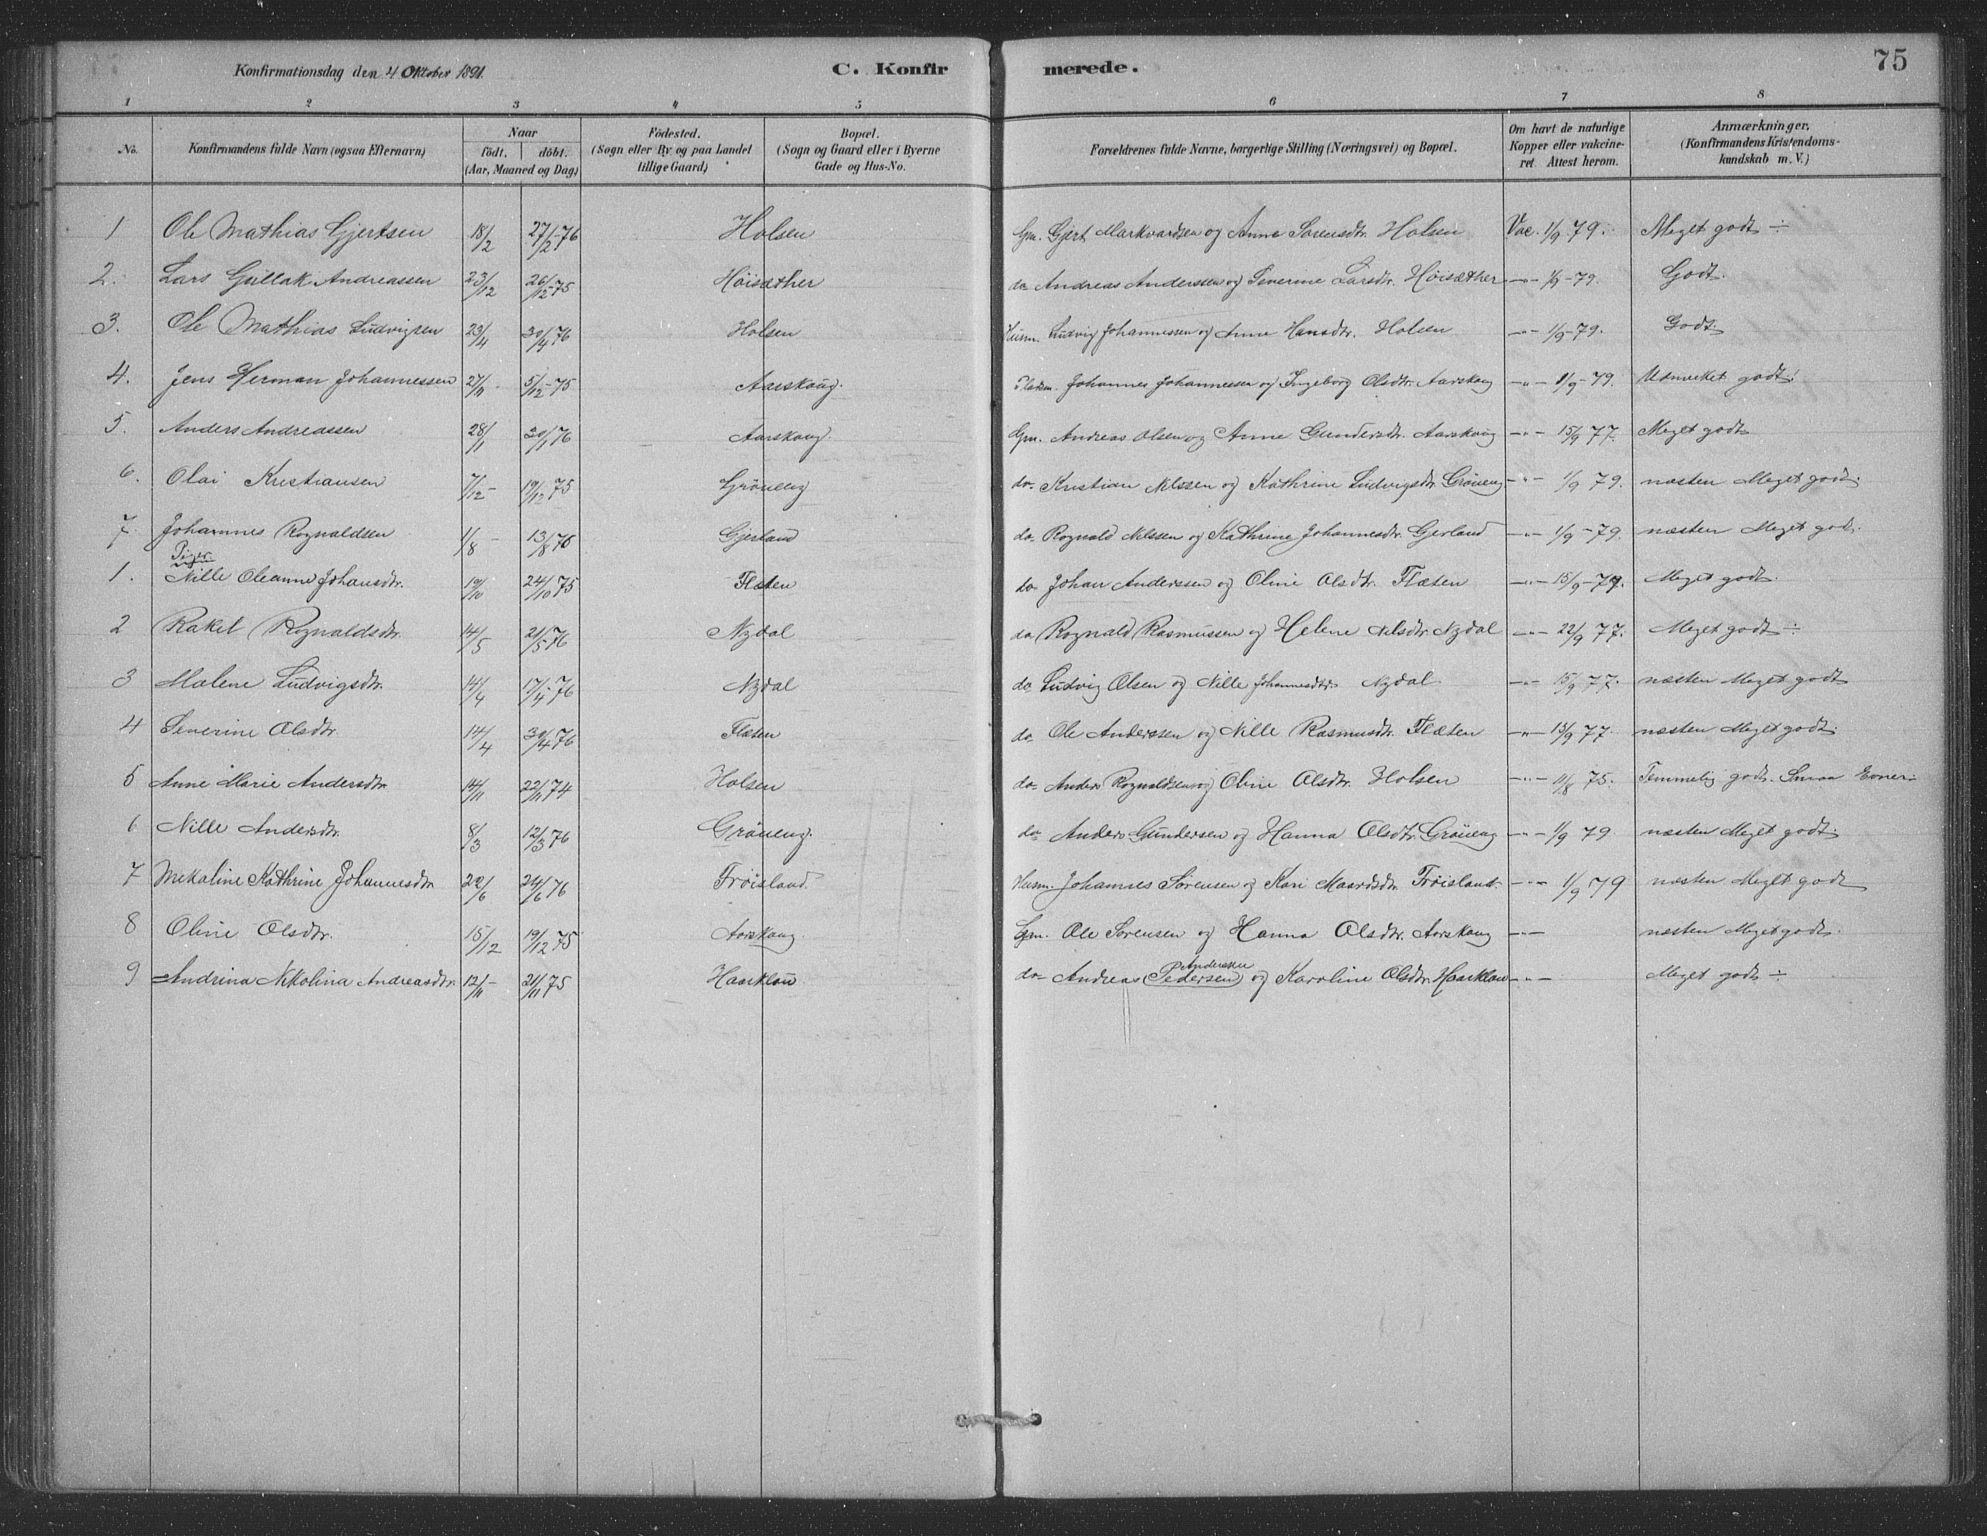 Konfirmationsdag den 4 Oktober 1891. C. Konfirmerede. 75
1 2 3 4 5 6 7 8
No. Konfirmandens fulde Navn (ogsaa Efternavn) Naar födt. döbt. (Aar, Maaned og Dag) Födested. (Sogn eller By og paa Landet tillige Gaard) Bopæl. (Sogn og Gaard eller i Byerne Gade og Hus-No. Forældrenes fulde Navne, borgerlige Stilling (Næringsvei) og Bopæl. Om havt de naturlige Kopper eller vakcineret. Attest herom. Anmærkninger. (Konfirmandens Kristendomskundskab m. V.)
1 Ole Mathias Gjertsen 18/2 27/2-76 Holsen Gm. Gjert Markvardsen og Anne Sörensdtr. Holsen Vac. 1/9 79. Meget godt ÷
2. Lars Gullak Andreassen 23/12 26/12-75 Höisæther do Andreas Anderssen og Severine Larsdtr. Höisæther -"- 1/9-79. Godt.
3. Ole Mathias Ludvigsen 23/4 30/4 76 Holsen Husm. Ludvig Johannessen og Anne Hansdtr. Holsen -"- 1/9-79. Godt.
4. Jens Herman Johannessen 27/11 - 5/12-75 Aarskoug. Johannes Johannessen og Ingeborg Olsdtr. Aarskoug -"- 1/9-79. Udmerket godt!
5. Anders Andreassen 28/1 30/1 76 Aarskoug. Gm. Andreas Olsen og Anne Gundersdtr. Aarskoug -"- 15/9 77. Meget godt
6. Olai Kristiansen 7/12 - 19/12 75 Gröneng do. Kristian Nilssen og Kathrine Ludvigsdtr. Gröneng -"- 1/9 79. næsten Meget godt.
7. Johannes Rognaldsen 1/8 - 13/8 76 Gjerland do. Rognald Nilssen og Kathrine Johannesdtr. Gjerland -"- 1/9-79. næsten Meget godt.
Piger.
1. Nille Oleanne Johansdtr. 19/10 24/10 75 Flæten do. Johan Anderssen og Oline Olsdtr. Flæten -"- 15/9-77. Meget godt.
2 Rakel Rognaldsdtr. 14/5 21/5 76 Nydal do Rognald Rasmussen og Helene Nilsdtr. Nydal -"- 22/9 77. Meget godt ÷
3 Malene Ludvigsdtr. 14/4 17/4 76 Nydal do Ludvig Olsen og Nille Johannesdtr. Nydal. -"- 15/9 77. næsten Meget godt
4 Severine Olsdtr. 14/4 30/4 76 Flæten do Ole Anderssen og Nille Rasmusdtr. Flæten -"- 15/9 77. næsten Meget godt.
5 Anne Marie Andersdtr. 14/11 22/11 74 Holsen do. Anders Rognaldsen og Oline Olsdtr. Holsen -"- 11/8 75. Temmelig godt. Smaa Evner.
6 Nille Andersdtr. 8/3 12/3 76 Gröneng. do. Anders Gundersen og Hanna Olsdtr. Gröneng -"- 1/9 79. næsten Meget godt.
7 Mekaline Kathrine Johannesdtr. 20/6 24/6 76 Fröisland. Husm. Johannes Sörensen og Kari Fröisland. -"- 1/9 79 næsten Meget godt
8 Oline Olsdtr. 15/12 19/12 75 Aarskoug. Gm. Ole Sörensen og Hanna Olsdtr. Aarskoug -"- næsten Meget godt.
Anderssen
9 Andrina Nikolina Andreasdtr. 12/11 - 21/11 75 Haarklau do Andreas (Pedersen) og Karoline Olsdtr. Haarklau -"- Meget godt ÷